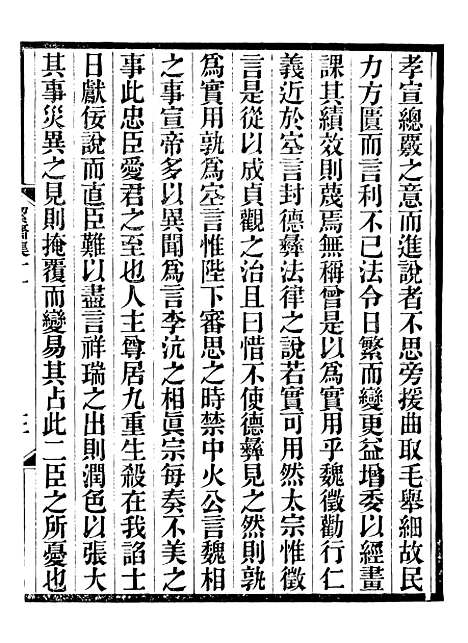 孝宣總覈之意而進說者不思旁援曲取毛舉細故民
力方匱而言利不已法令日繁而變更益增委以經畫
課其績效則蔑焉無稱曾是以爲實用乎魏徵勸行仁
義近於空言封德彝法律之說若實可用然太宗惟徵
言是從以成貞觀之治且曰惜不使德彝見之然則孰
爲實用孰爲空言惟陛下審思之時禁中火公言魏相
之事宣帝多以異聞爲言李沆之相眞宗每奏不美之
事此忠臣愛君之至也人主尊居九重生殺在我諂士
日獻佞說而直臣難以盡言祥瑞之出則潤色以張大
其事災異之見則掩覆而變易其占此二臣之所憂也